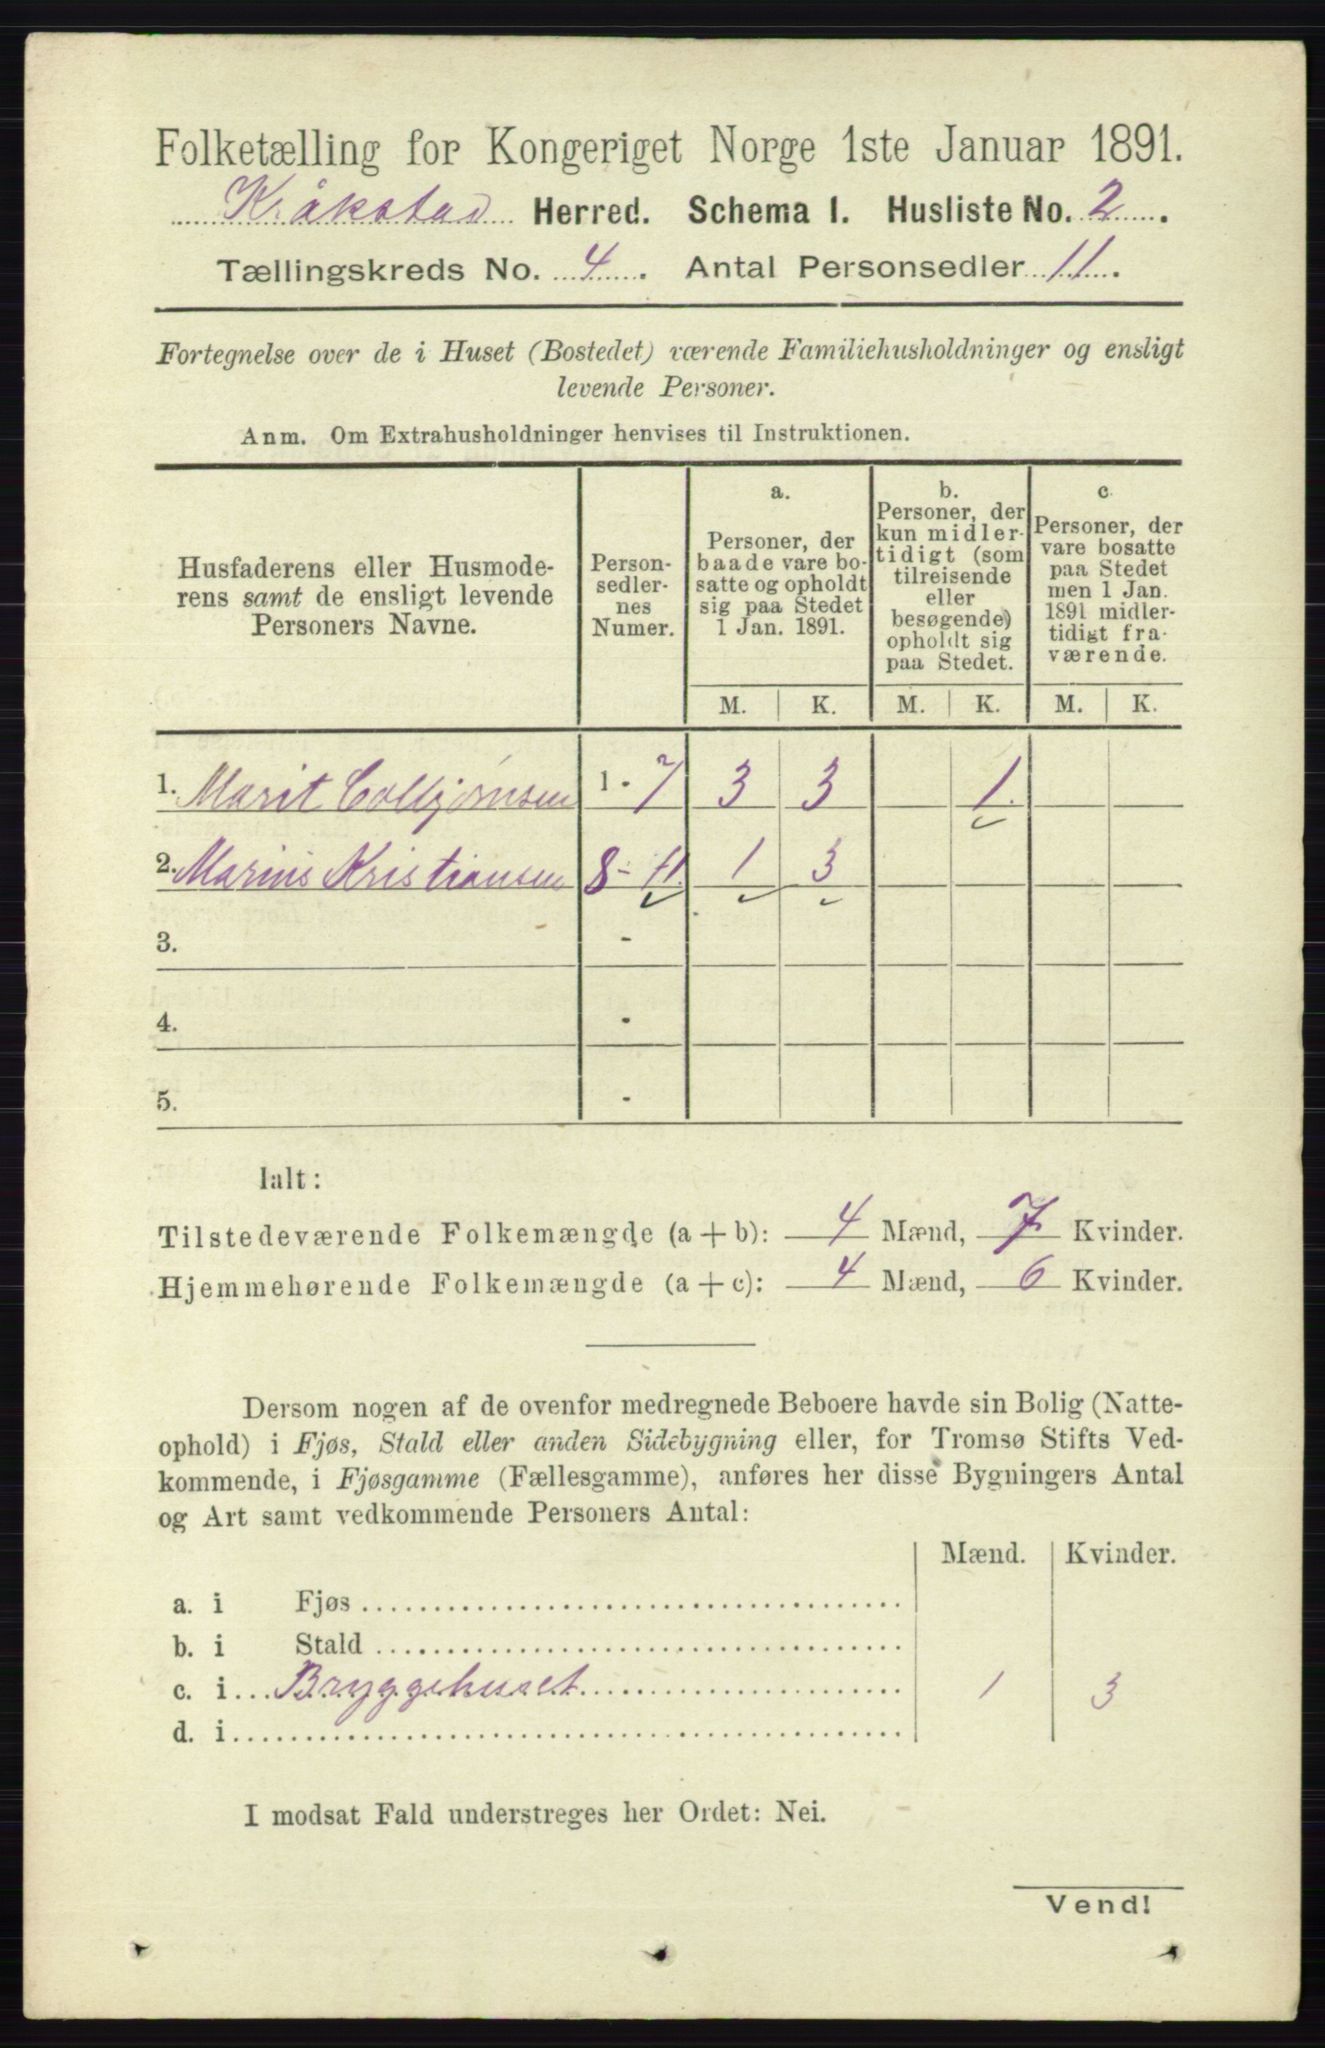 Folketælling for Kongeriget Norge 1ste Januar 1891.
Kråkstad Herred. Schema 1. Husliste No. 2.
Tællingskreds No. 4. Antal Personsedler 11.
Fortegnelse over de i Huset (Bostedet) værende Familiehusholdninger og ensligt
levende Personer.
Anm. Om Extrahusholdninger henvises til Instruktionen.
Husfaderens eller Husmode-
rens samt de ensligt levende
Personers Navne.
Person-
sedler-
nes
Numer.
a.
Personer, der
baade vare bo-
satte og opholdt
sig paa Stedet
1 Jan. 1891.
b.
Personer, der
kun midler-
tidigt (som
tilreisende
eller
besøgende)
opholdt sig
paa Stedet.
c.
Personer, der
vare bosatte
paa Stedet
men 1 Jan.
1891 midler-
tidigt fra-
værende.
M. K. M. K. M. K.
1. Marit Colbjørnsen 1 - 7 3 3 1.
2. Marius Kristiansen 8 - 11. 1 3
3. -
4. -
5. -
Ialt:
Tilstedeværende Folkemængde (a + b): 4 Mænd, 7 Kvinder.
Hjemmehørende Folkemængde (a + c): 4 Mænd, 6 Kvinder.
Dersom nogen af de ovenfor medregnede Beboere havde sin Bolig (Natte-
ophold) i Fjøs, Stald eller anden Sidebygning eller, for Tromsø Stifts Ved-
kommende, i Fjøsgamme (Fællesgamme), anføres her disse Bygningers Antal
og Art samt vedkommende Personers Antal:
Mænd. Kvinder.
a. i Fjøs
b. i Stald
c. i Bryggehuset 1 3
d. i
I modsat Fald understreges her Ordet: Nei.
Vend!